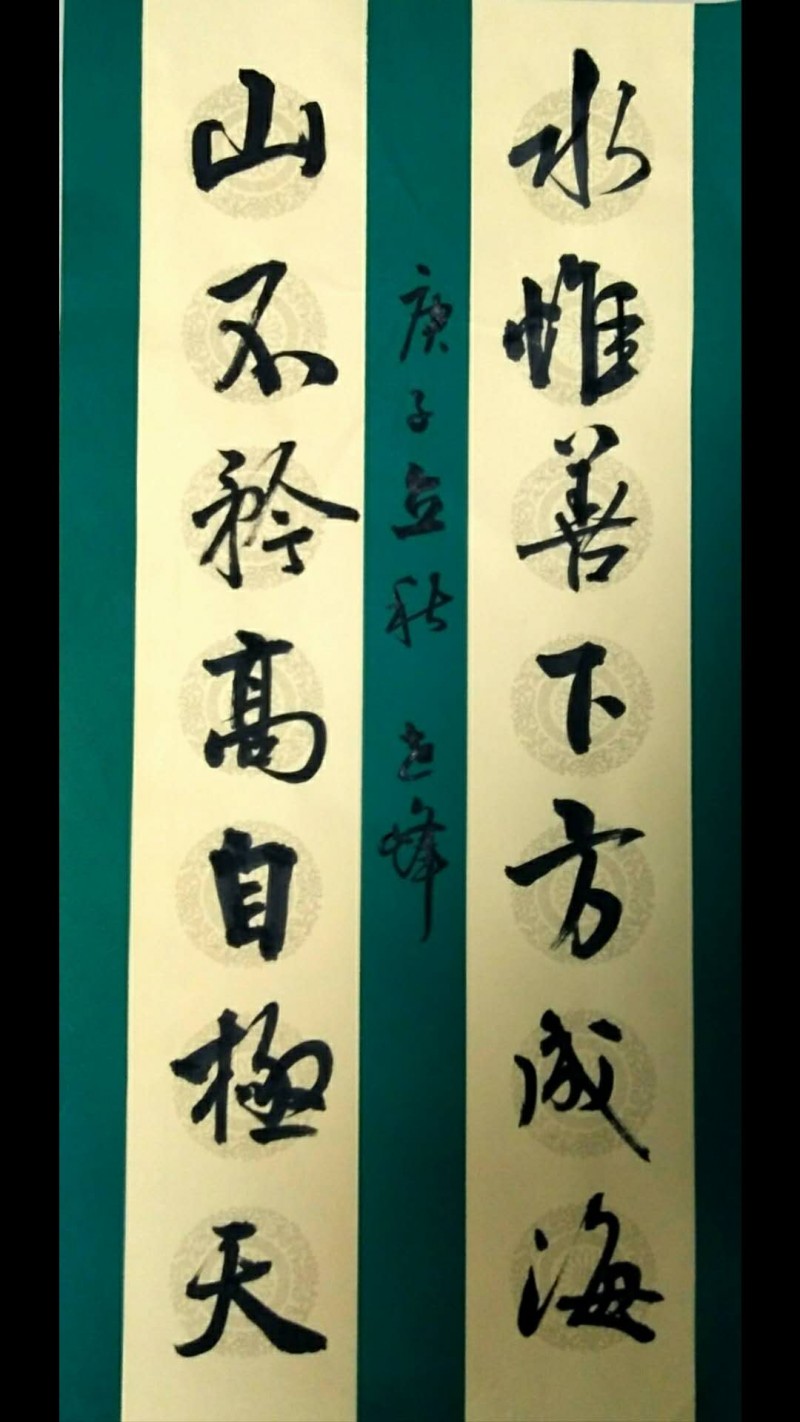 水惟善下方成海
庚子立秋 志峰
山不矜高自極天